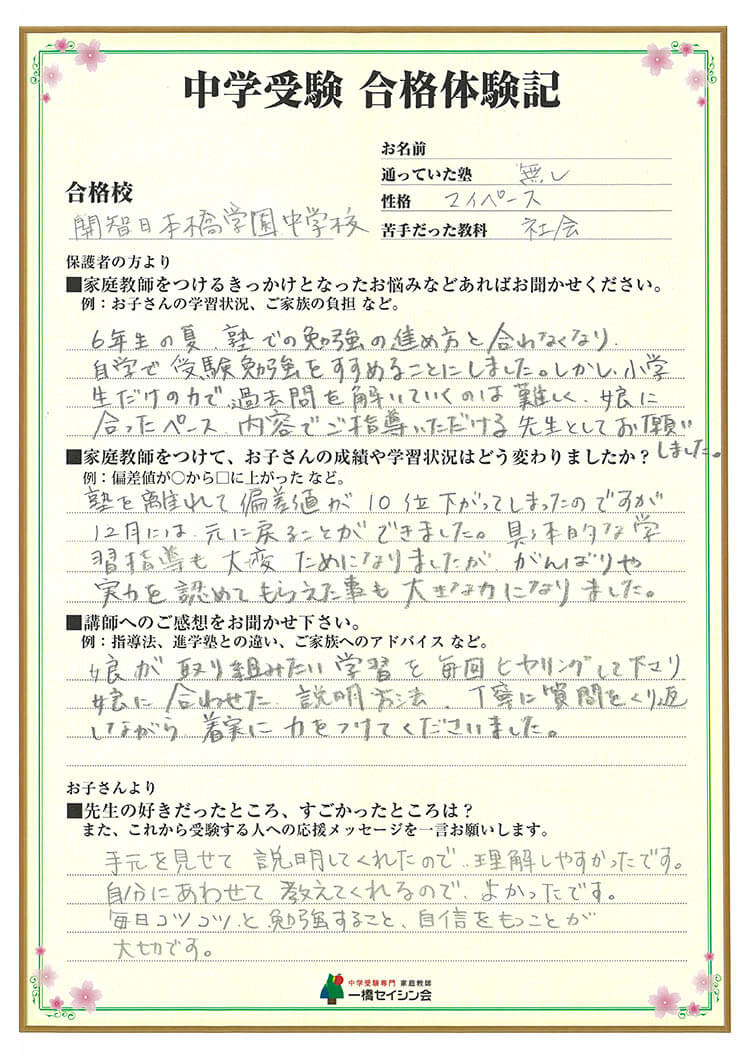 中学受験 合格体験記
お名前
通っていた塾 無し
性格 マイペース
苦手だった教科 社会
合格校
開智日本橋学園中学校
保護者の方より
■家庭教師をつけるきっかけとなったお悩みなどあればお聞かせください。
例：お子さんの学習状況、ご家族の負担 など。
6年生の夏、塾での勉強の進め方と合わなくなり、
自学で受験勉強をすすめることにしました。しかし、小学
生だけの力で過去問を解いていくのは難しく、娘に
合ったペース、内容でご指導いただける先生としてお願い
しました。
■家庭教師をつけて、お子さんの成績や学習状況はどう変わりましたか？
例：偏差値が○から□に上がった など。
塾を離れて偏差値が10位下がってしまったのですが
12月には、元に戻ることができました。具体的な学
習指導も大変ためになりましたが、がんばりや
実力を認めてもらえた事も大きな力になりました。
■講師へのご感想をお聞かせ下さい。
例：指導法、進学塾との違い、ご家族へのアドバイス など。
娘が取り組みたい学習を毎回ヒヤリングして下さり
娘に合わせた説明方法、丁寧に質問をくり返
しながら、着実に力をつけてくださいました。
お子さんより
■先生の好きだったところ、すごかったところは？
また、これから受験する人への応援メッセージを一言お願いします。
手元を見せて説明してくれたので、理解しやすかったです。
自分にあわせて教えてくれるので、よかったです。
毎日コツコツと勉強すること、自信をもつことが
大切です。
中学受験専門 家庭教師
一橋セイシン会